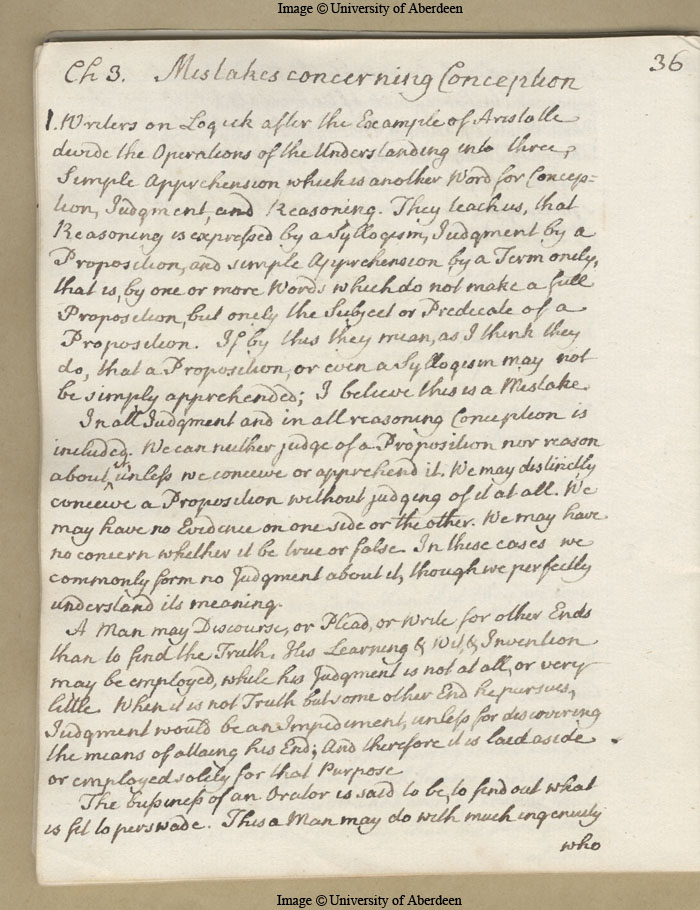 Image © University of Aberdeen
36
Ch 3. Mistakes concerning Conception
1. Writers on Logick after the Example of Aristotle
divide the Operations of the Understanding into three,
Simple Apprehension which is another Word for Concep=
tion, Judgment, and Reasoning. They teach us, that
Reasoning is expressed by a Syllogism, Judgment by a
Proposition, and simple Apprehension by a Term onely,
that is, by one or more Words which do not make a full
Proposition, but onely the Subject or Predicate of a
Proposition. If by this they mean, as I think they
do, that a Proposition, or even a Syllogism may not
be simply apprehended; I believe this is a Mistake.
In all Judgment and in all reasoning Conception is
included. We can neither judge of a Proposition nor reason
about it unless we conceive or apprehend it. We may distinctly
conceive a Proposition without judging of it at all. We
may have no Evidence on one side or the other. We may have
no concern whether it be true or false. In these cases we
commonly form no Judgment about it, though we perfectly
understand its meaning.
A Man may Discourse, or Plead, or Write for other Ends
than to find the Truth. His Learning & Wit, & Invention
may be employed, while his Judgment is not at all, or very
little. When it is not Truth but some other End he pursues,
Judgment would be an Impediment, unless for discovering
the means of attaing his End; And therefore it is laid aside
or employed solely for that Purpose
The bussiness of an Orator is said to be, to find out what
is fit to perswade. This a Man may do with much ingenuity
who
Image © University of Aberdeen